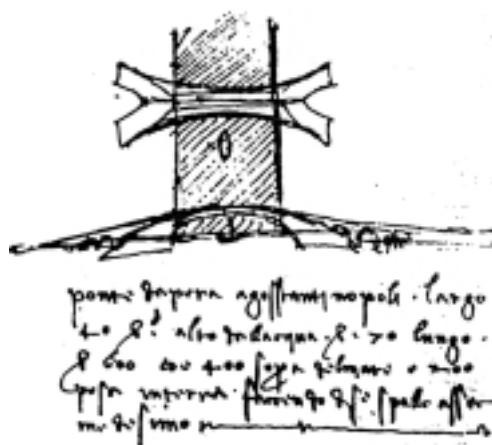 ponte da pera a gosstantinopoli · largo
40 br alto dallacqua br 70 lungo
br 600 coe 400 sopa del mare e 200
posa in terra · faccendo di se spalle a sse
me desimo